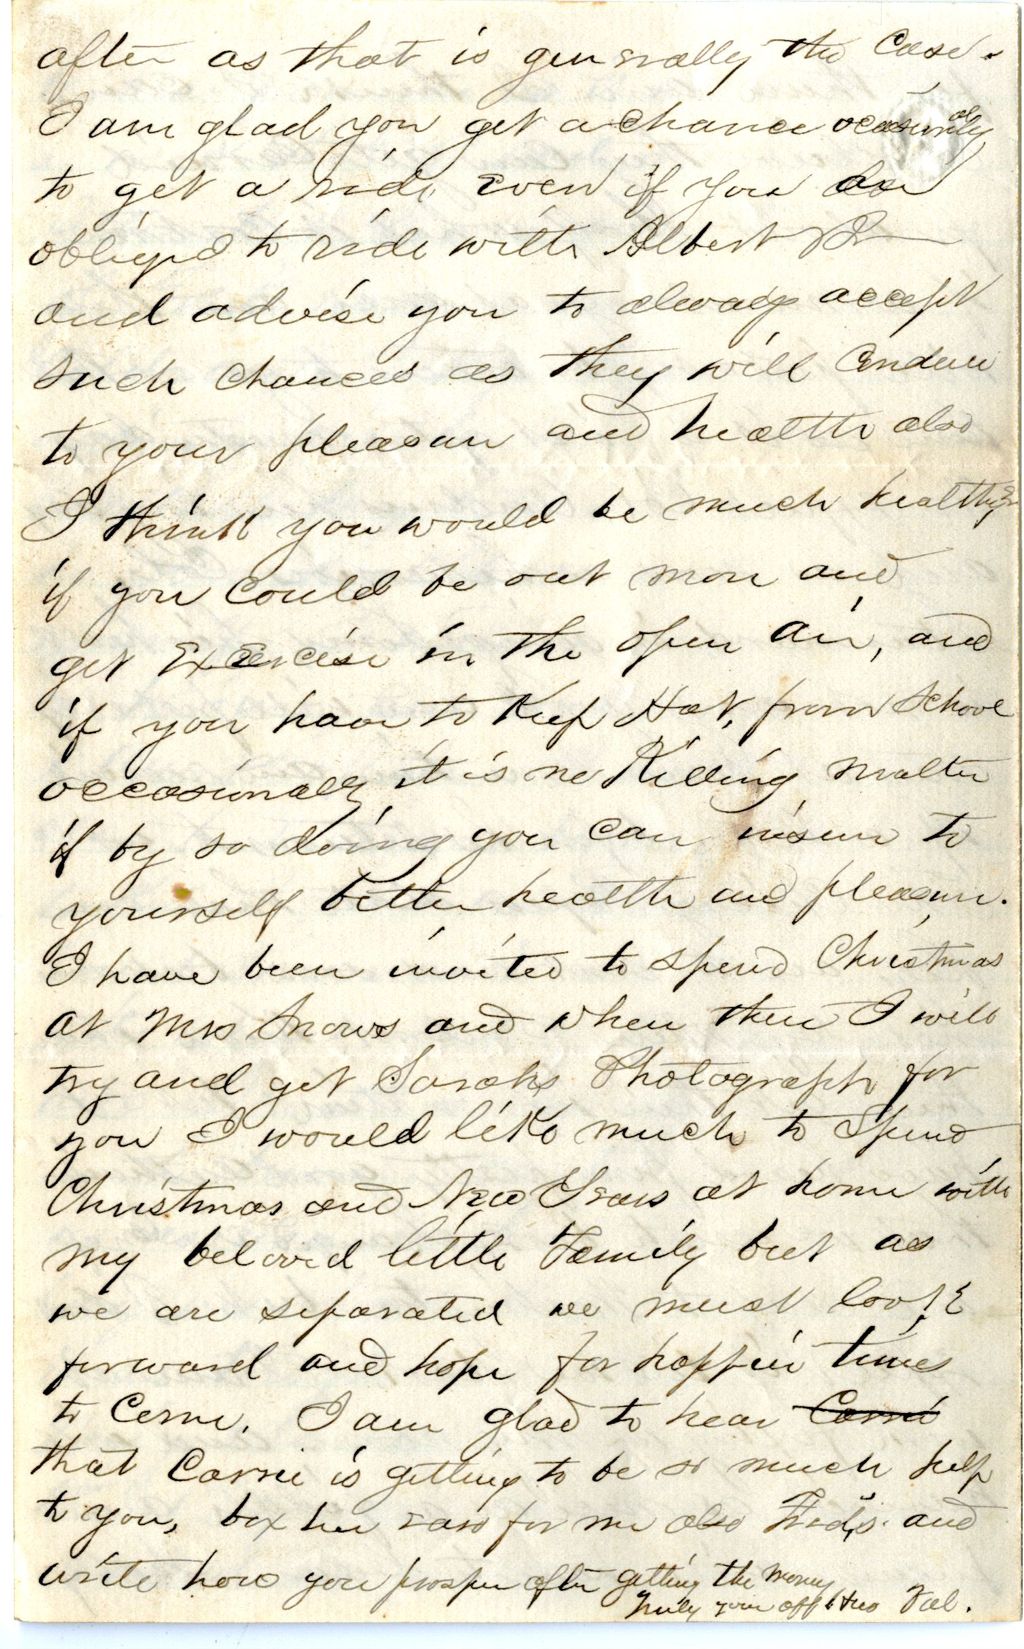 after as that is generally the case.
I am glad you get a chance occasionally
to get a ride even if you are
obliged to ride with Albert
and advise you to always accept
such chances as they will conduce
to your pleasure and health also
I think you would be much healthyer
if you could be out more and
get Exercise in the open air, and
if you have to Keep Hat, from School
occasionally it is no Killing matter
if by so doing you can insure to
yourself better health and pleasure.
I have been invited to spend Christmas
at Mrs Snows and when there I will
try and get Sarahs Photograph for
you I would like much to Spend
Christmas and New Years at home with
my beloved little Family but as
we are separated we must look
forward and hope for happier times
to Come. I am glad to hear Carrie
that Carrie is getting to be so much help
to you, box her ears for me also Fred's and
write how you prosper after getting the money
Truly your aff Hus Val.